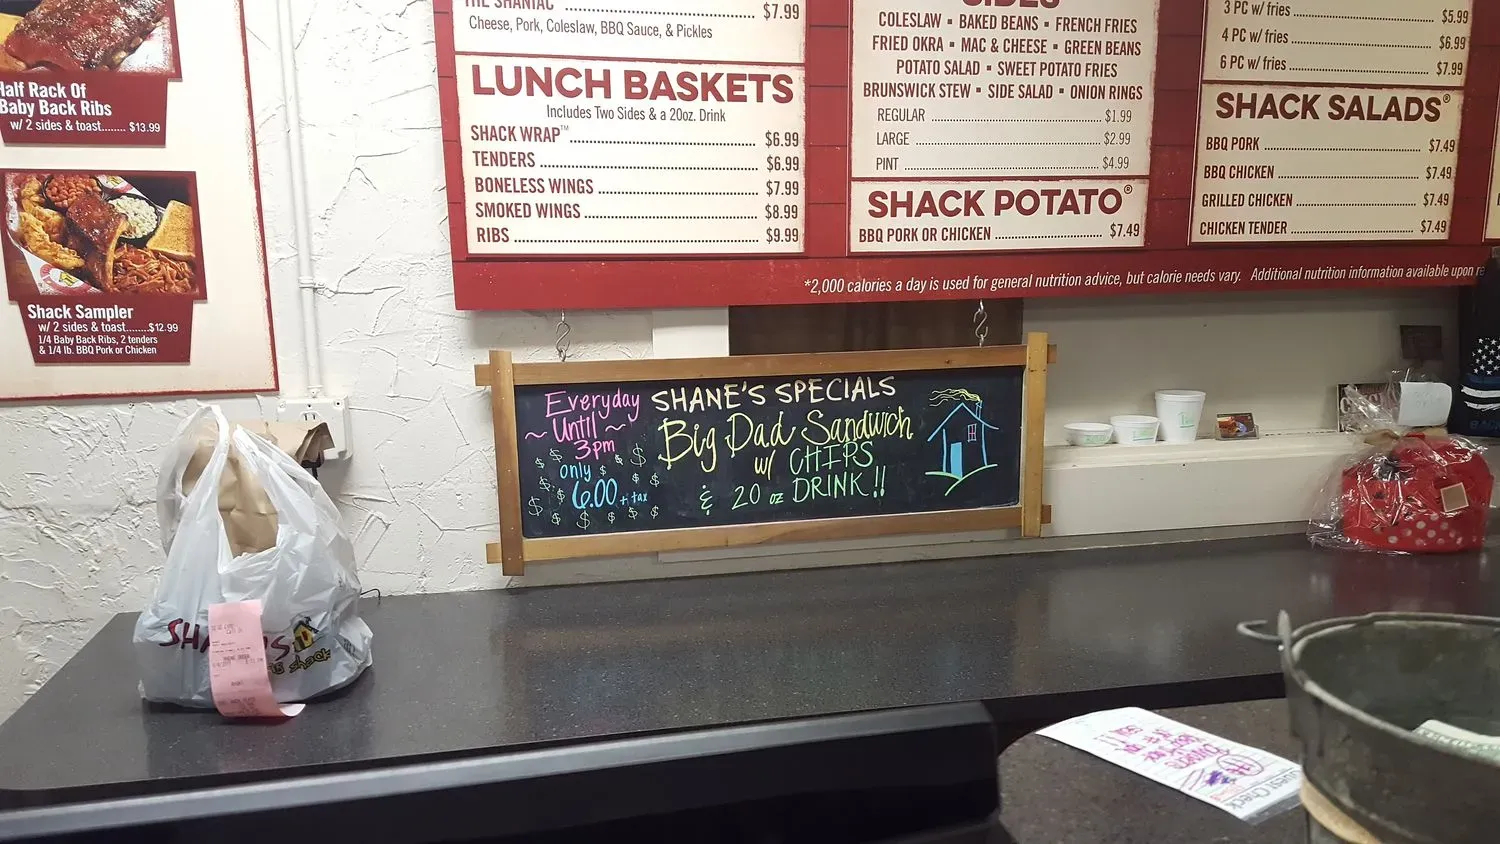 Half Rack Of
Baby Back Ribs
w/ 2 sides & toast....... $13.99
Shack Sampler
w/ 2 sides & toast.......$12.99
1/4 Baby Back Ribs, 2 tenders
& 1/4 lb. BBQ Pork or Chicken
THE SHANIAC $7.99
Cheese, Pork, Coleslaw, BBQ Sauce, & Pickles
LUNCH BASKETS
Includes Two Sides & a 20oz. Drink
SHACK WRAP™ $6.99
TENDERS $6.99
BONELESS WINGS $7.99
SMOKED WINGS $8.99
RIBS $9.99
SIDES
COLESLAW ▪ BAKED BEANS ▪ FRENCH FRIES
FRIED OKRA ▪ MAC & CHEESE ▪ GREEN BEANS
POTATO SALAD ▪ SWEET POTATO FRIES
BRUNSWICK STEW ▪ SIDE SALAD ▪ ONION RINGS
REGULAR $1.99
LARGE $2.99
PINT $4.99
SHACK POTATO®
BBQ PORK OR CHICKEN $7.49
3 PC w/ fries $5.99
4 PC w/ fries $6.99
6 PC w/ fries $7.99
SHACK SALADS®
BBQ PORK $7.49
BBQ CHICKEN $7.49
GRILLED CHICKEN $7.49
CHICKEN TENDER $7.49
*2,000 calories a day is used for general nutrition advice, but calorie needs vary. Additional nutrition information available upon re
Everyday
~ Until ~
3pm
only
6.00 + tax
SHANE'S SPECIALS
Big Dad Sandwich
w/ CHIPS
& 20 oz DRINK!!
Guest Check